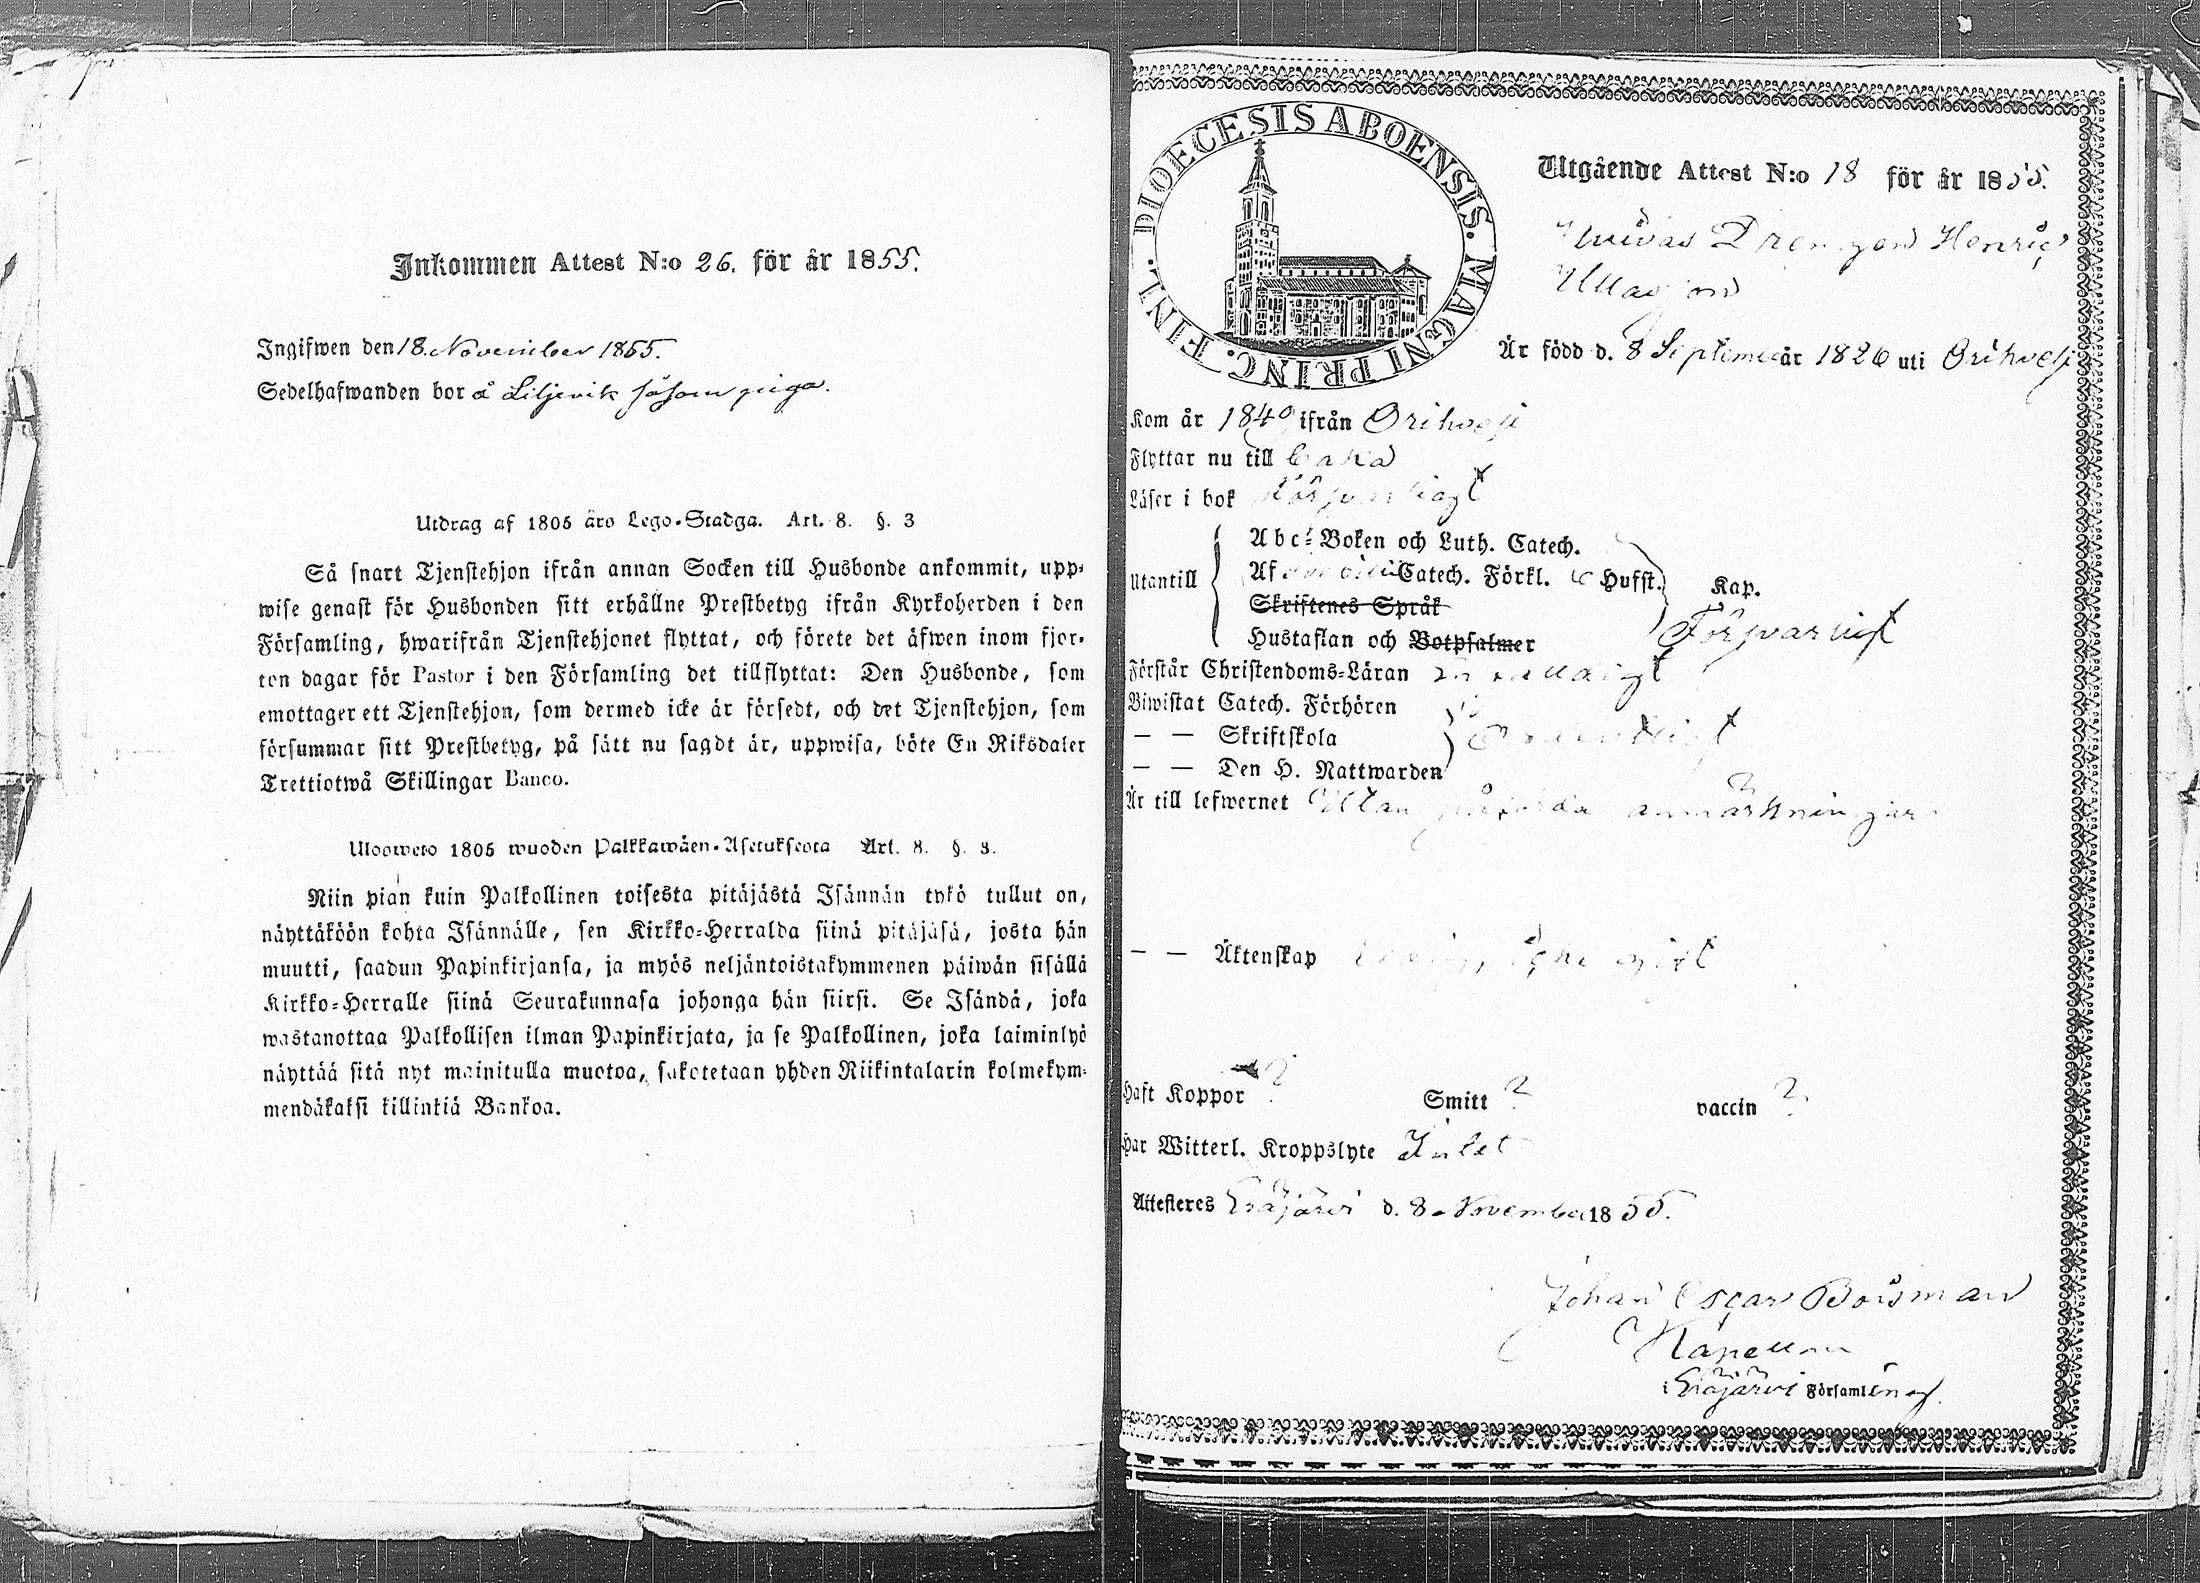 Inkommen Attest N:o 26. för år 1855.
Ingifwen den 18. November 1855.
Sedelhafwanden bor å Liljevik såsom piga.
Utdrag af 1805 års Lego-Stadga. Art. 8. §. 3
Så snart Tjenstehjon ifrån annan Socken till Husbonde ankommit, upp-
wise genast för Husbonden sitt erhållne Prestbetyg ifrån Kyrkoherden i den
Församling, hwarifrån Tjenstehjonet flyttat, och förete det äfwen inom fjor-
ton dagar för Pastor i den Församling det tillflyttat: Den Husbonde, som
emottager ett Tjenstehjon, som dermed icke är försedt, och det Tjenstehjon, som
försummar sitt Prestbetyg, på sätt nu sagdt är, uppwisa, böte En Riksdaler
Trettiotwå Skillingar Banco.
Ulosweto 1805 wuoden Palkkawäen-Asetuksesta Art. 8. §. 3.
Niin pian kuin Palkollinen toisesta pitäjästä Isännän tykö tullut on,
näyttäköön kohta Isännälle, sen Kirkko-Herralda siinä pitäjäsä, josta hän
muutti, saadun Papinkirjansa, ja myös neljäntoistakymmenen päiwän sisällä
Kirkko-Herralle siinä Seurakunnasa johonga hän siirsi. Se Isändä, joka
wastanottaa Palkollisen ilman Papinkirjata, ja se Palkollinen, joka laiminlyö
näyttää sitä nyt mainitulla muotoa, sakotetaan yhden Riikintalarin kolmekym-
mendäkaksi killinkiä Bankoa.
DIOECESIS ABOENSIS. MAGNI PRINC. FINL.
Utgående Attest N:o 18 för år 1855.
Drengen Henric
Är född d. 8 September år 1826 uti Orihvesi
Kom år 1840 ifrån Orihvesi
Flyttar nu till
Läser i bok Försvarligt
Utantill
Abc-Boken och Luth. Catech.
Af Catech. Förkl. Husst. Kap.
Skriftenes Språk
Hustaflan och Botpsalmer Försvarligt
Förstår Christendoms-Läran
Biwistat Catech. Förhören
— — Skriftskola Ordentligt
— — Den H. Nattwarden
Är till lefwernet Utan anmärkningar
— — Äktenskap Ledig, icke gift
Haft Koppor ? Smitt ? vaccin ?
Har Witterl. Kroppslyte Intet
Attesteres Eräjärvi d. 8 November 1855.
Johan Oscar Boisman
Kapellan
i Eräjärvi Församling.